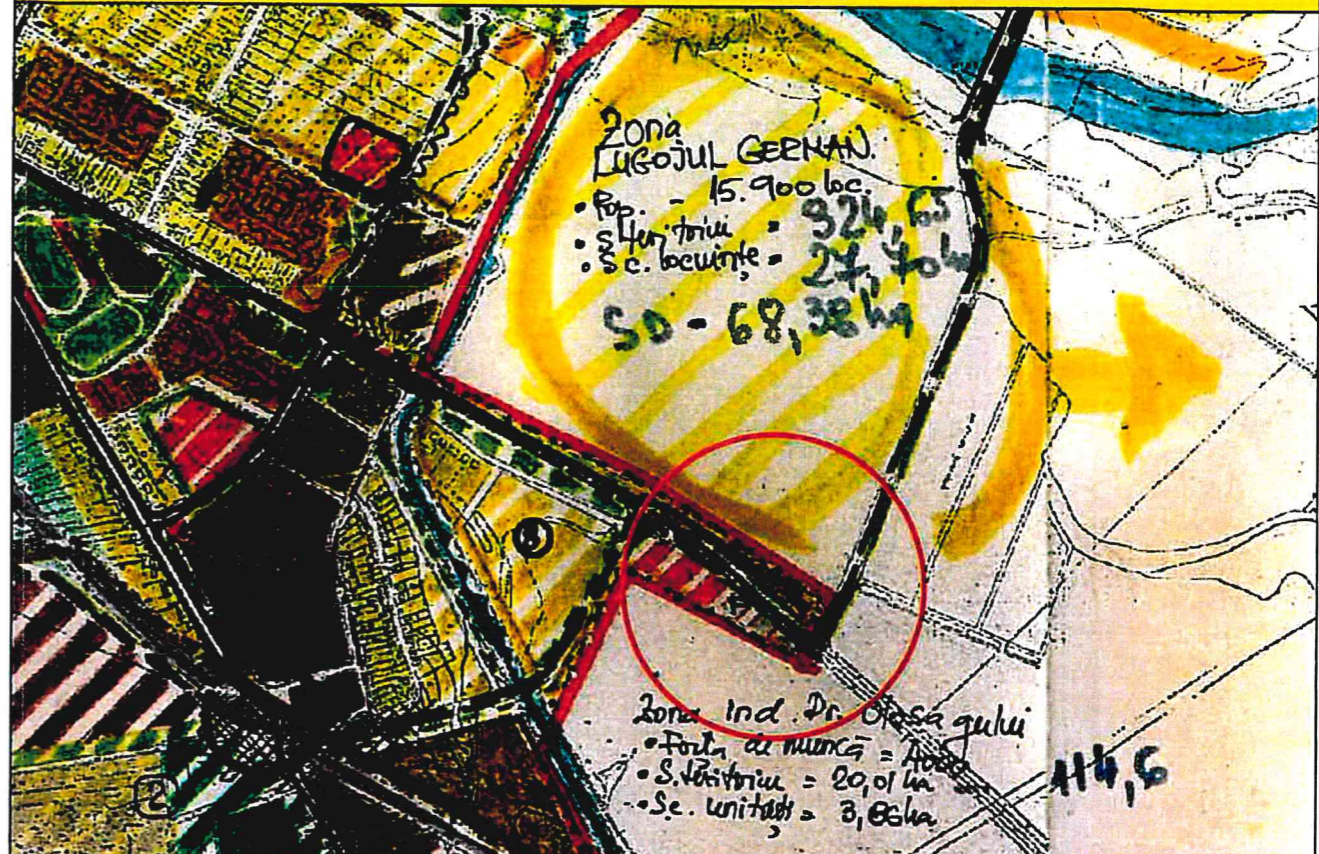 Zona
LUGOJUL GERMAN.
• Pop. - 15.900 loc.
• S teritoriu = 324,65
• S c. locuințe = 27,70 h
SD - 68,38 ha
4
Zona ind. Dr. gului
• Forta de muncă =
• S. teritoriu = 20,01 ha
• S.c. unități = 3,86ha
114,6
2